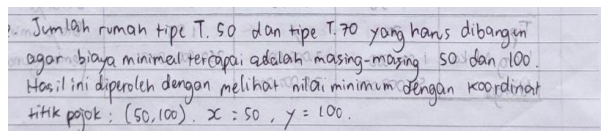 . Jumlah rumah tipe T. 50 dan tipe T. 70 yang harus dibangun
agar biaya minimal tercapai adalah masing-masing 50 dan 100.
Hasil ini diperoleh dengan melihat nilai minimum dengan koordinat
titik pojok : (50,100). x = 50, y = 100.